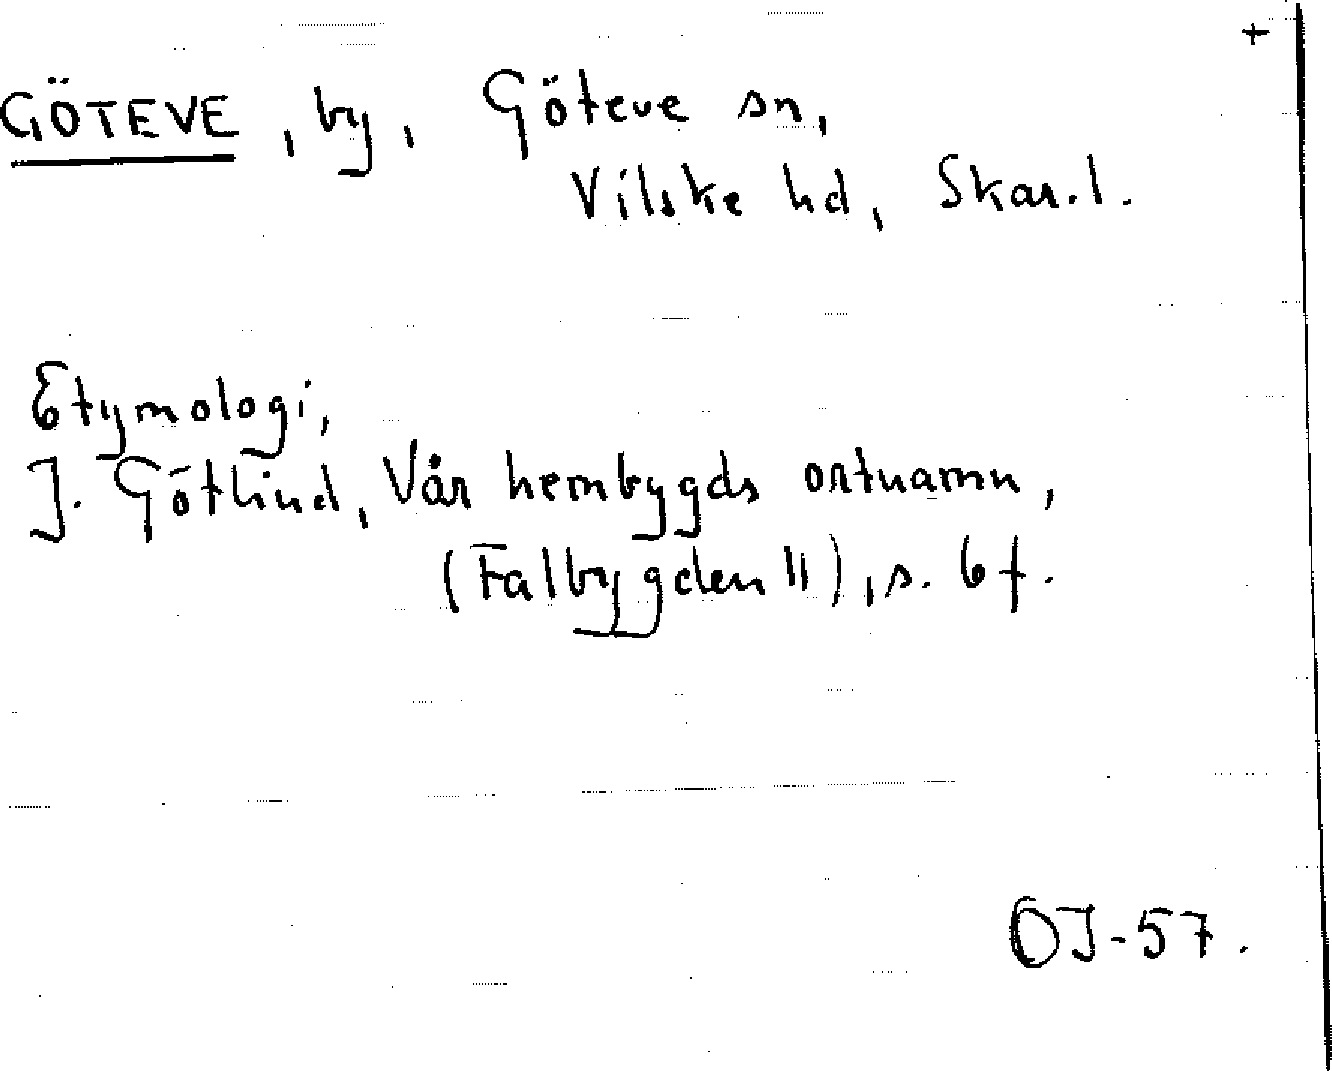 +
GÖTEVE, by, Göteve sn,
Vilske hd, Skar.l.
Etymologi,
J. Götlind, Vår hembygds ortnamn,
(Falbygden II), s. 6f.
OJ-57.